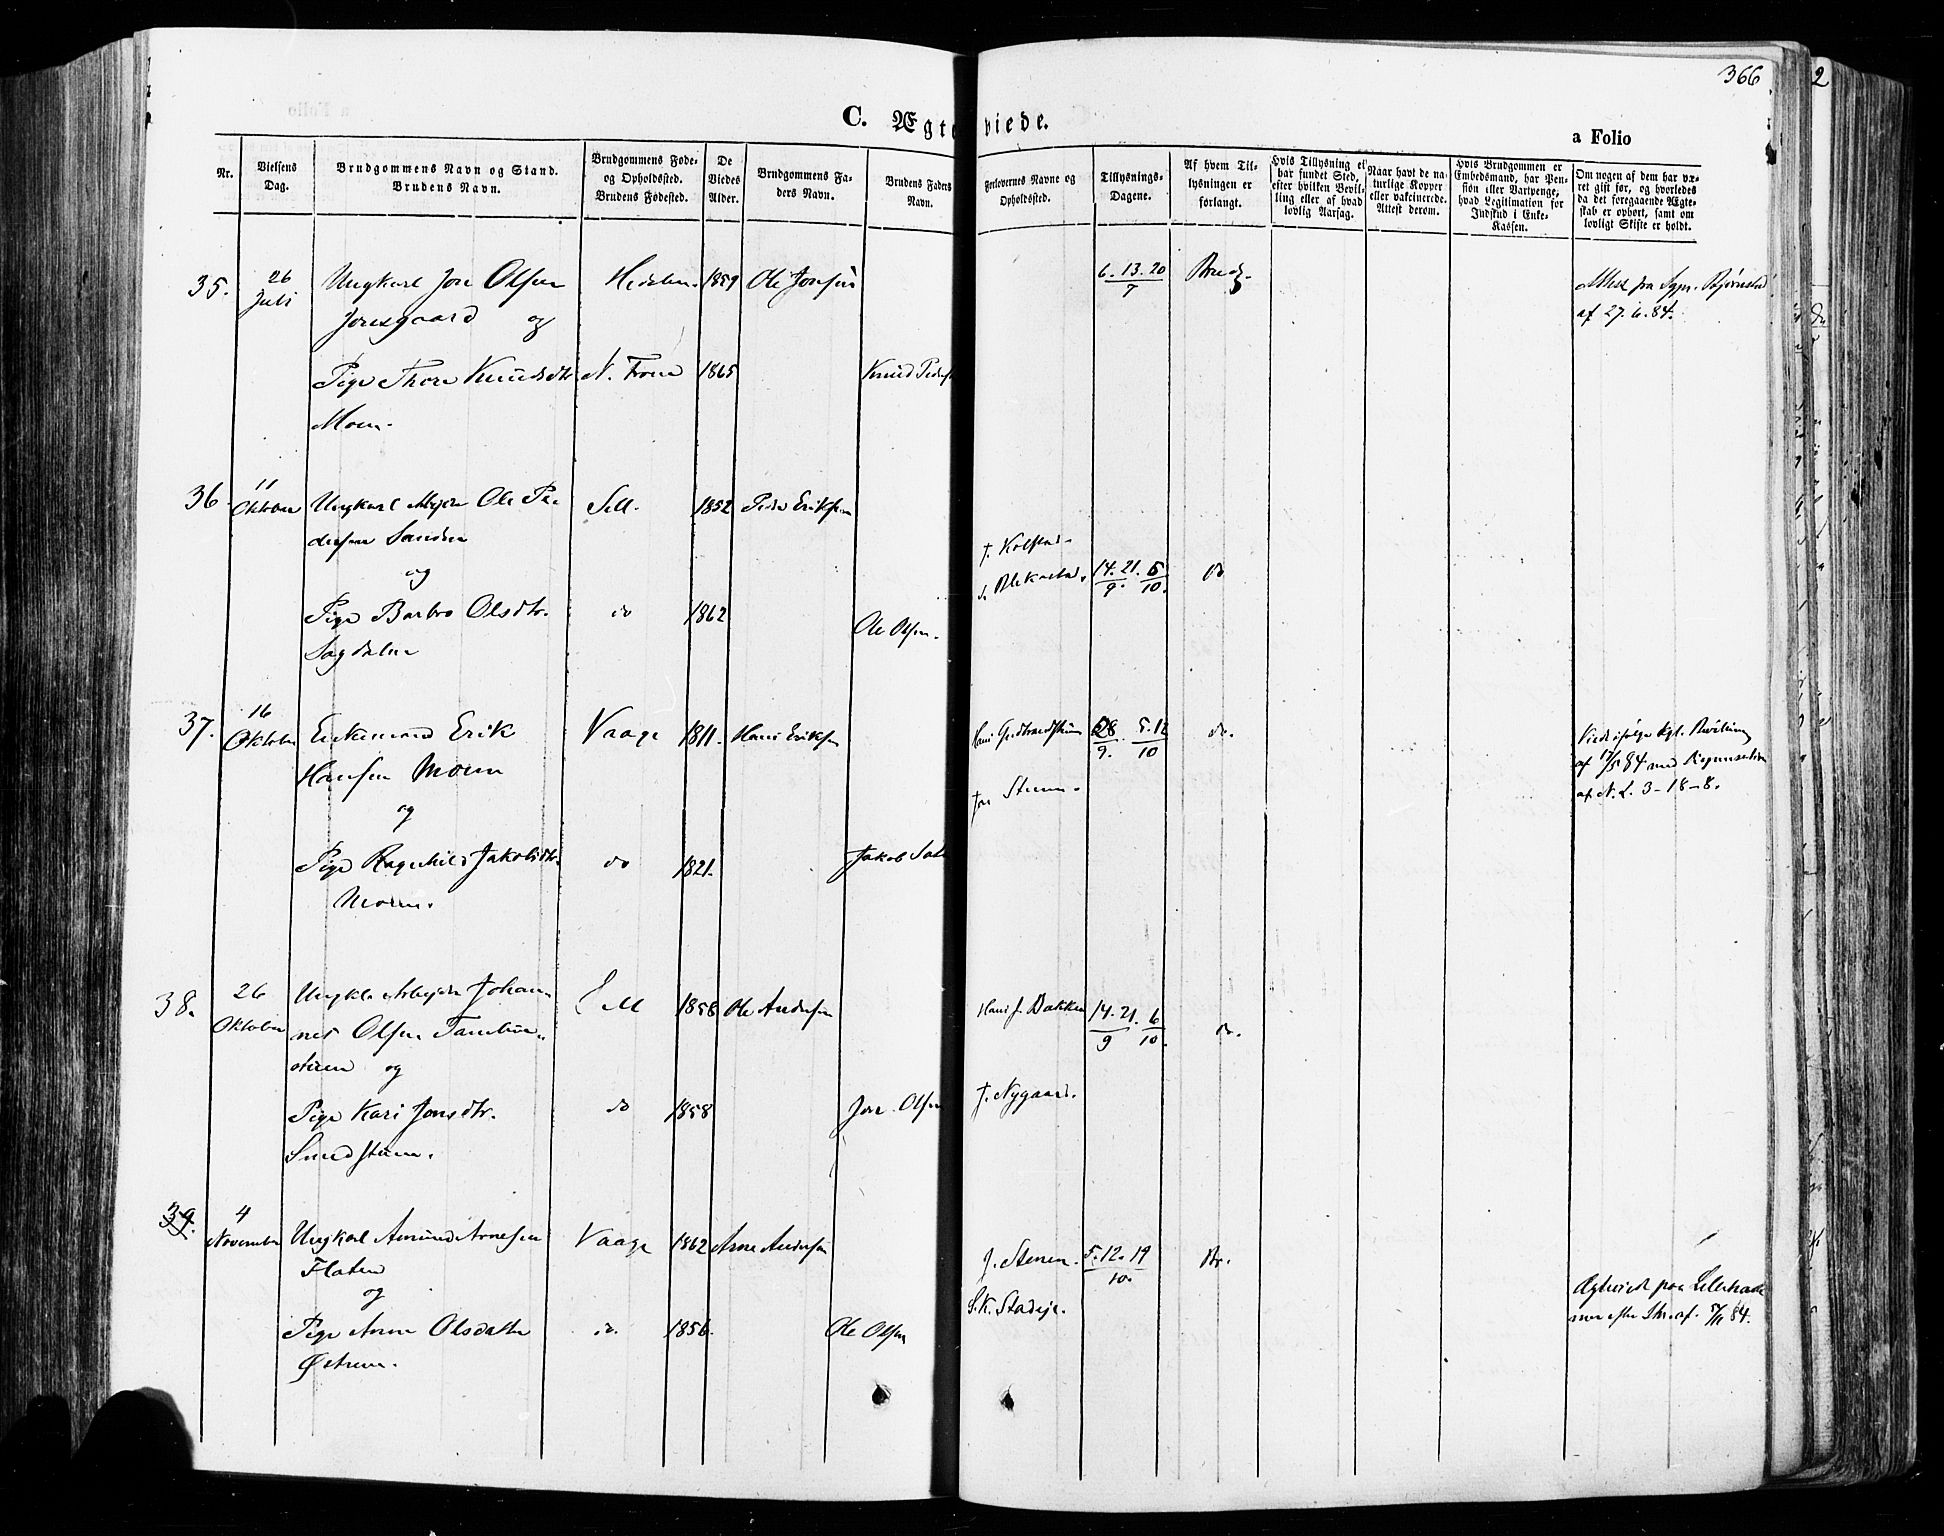 366
2
C. Ægteviede.
a Folio
Nr.
Vielsens Dag.
Brudgommens Navn og Stand.
Brudens Navn.
Brudgommens Føde-
og Opholdssted.
Brudens Fødested.
De
Viedes
Alder.
Brudgommens Fa-
ders Navn.
Brudens Faders
Navn.
Forlovernes Navne og
Opholdssted.
Tillysnings-
Dagene.
Af hvem Til-
lysningen er
forlangt.
Hvis Tillysning ei
har fundet Sted,
efter hvilken Bevil-
ling eller af hvad
lovlig Aarsag.
Naar havt de na-
turlige Kopper
eller vakcinerede.
Attest derom.
Hvis Brudgommen er
Embedsmand, har Pen-
sion eller Vartpenge,
hvad Legitimation for
Indskud i Enke-
Kassen.
Om nogen af dem har væ-
ret gift før, og hvorledes
da det foregaaende Ægte-
skab er ophørt, samt om
lovligt Skifte er holdt.
35. 26 Juli Ungkarl Jon Olsen Hedalen. 1859 Ole Jonsen 6. 13. 20/7 Brudg. Attest fra Sgpr. Bjørnstad
Jonsgaard og af 27.6.84.
Pige Thore Knudsdtr. N. Fron 1865 Knud Peders
Moen.
36. 11 Oktober Ungkarl Arbejder Ole Pe- Sell. 1852 Peder Eriksen
dersen Sanden J. Kolstad.
og Blekastad. 14. 21./9. 5/10. do
Pige Barbro Olsdtr. do 1862 Ole Olsen.
Sagdalen
37. 16 Oktober Enkemand Erik Vaage 1811. Hans Eriksen Hans Gudbrandsstuen 28/9. 5.12/10 do. Viede ifølge kgl. Bevilling
Hansen Moen Jon Steen. af 17/5 84 med Dispensation
og af N. L. 3-18-8.
Pige Ragnhild Jakobsdtr. do 1821. Jakob
Moen.
38. 26 Oktober Ungkl. Arbejder Johan- Sell 1858 Ole Andersen Hans J. Bakken 14. 21./9 6/10. do.
nes Olsen
og
Pige Kari Jonsdtr. do 1858 Jon Olsen J. Nygaard.
39. 4 November Ungkarl Amund Arnesen Vaage 1862 Arne Andersen J. Stenen. 5. 12. 19/10. Br.
Flaten
og S. K. Stadeje. Ægteviede paa Lilleham-
Pige Anne Olsdatter do. 1856. Ole Olsen mer efter Skr. af. 5/11 84.
Østrem.